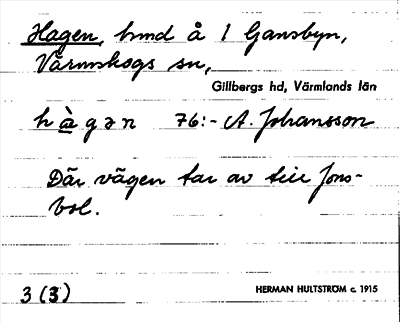 Hagen, hmd å 1 Gansbyn,
Värmskogs sn,
Gillbergs hd, Värmlands län
hàgən 76:- A. Johansson
Där vägen tar av till Jons-
bol.
3 (3)
HERMAN HULTSTRÖM c. 1915